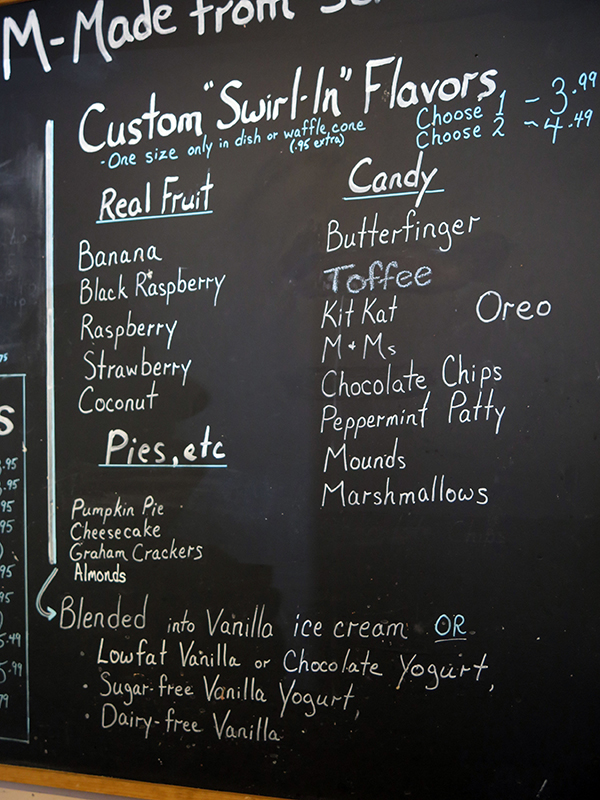 M-Made from
Custom "Swirl-In" Flavors
- One size only in dish or waffle cone
(.95 extra)
Choose 1 - 3.99
Choose 2 - 4.49
Real Fruit
Banana
Black Raspberry
Raspberry
Strawberry
Coconut
Pies, etc
Pumpkin Pie
Cheesecake
Graham Crackers
Almonds
Candy
Butterfinger
Toffee
Kit Kat
Oreo
M+Ms
Chocolate Chips
Peppermint Patty
Mounds
Marshmallows
Blended into Vanilla ice cream OR
· Lowfat Vanilla or Chocolate Yogurt,
· Sugar-free Vanilla Yogurt,
· Dairy-free Vanilla